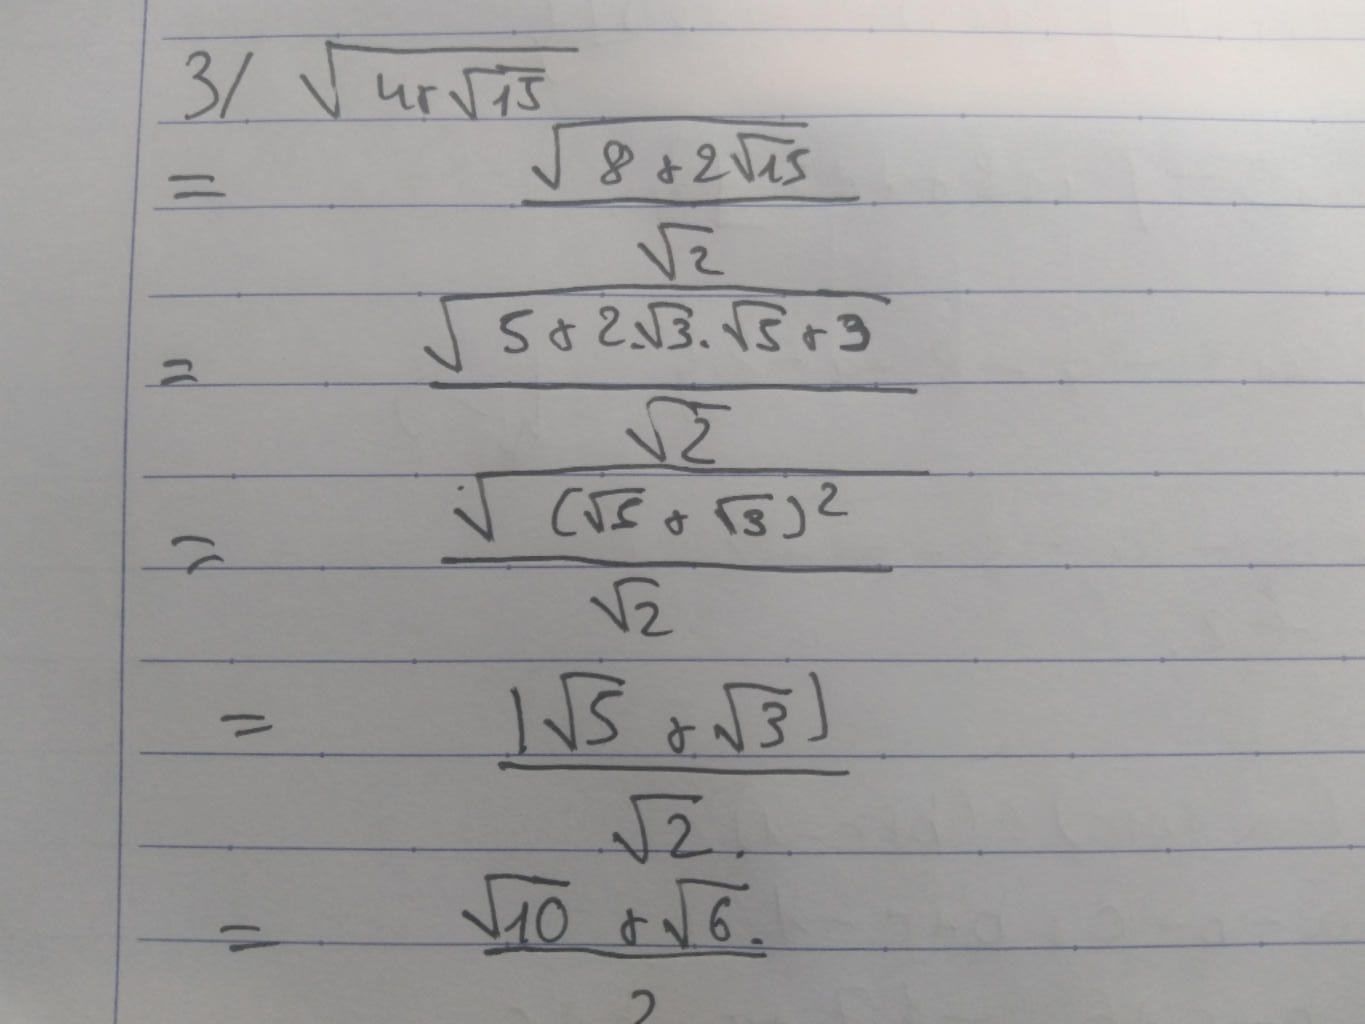 3/ √(4+√15)
= √(8+2√15) / √2
= √(5+2.√3.√5+3) / √2
= √((√5+√3)²) / √2
= |√5+√3| / √2.
= √10+√6. / 2